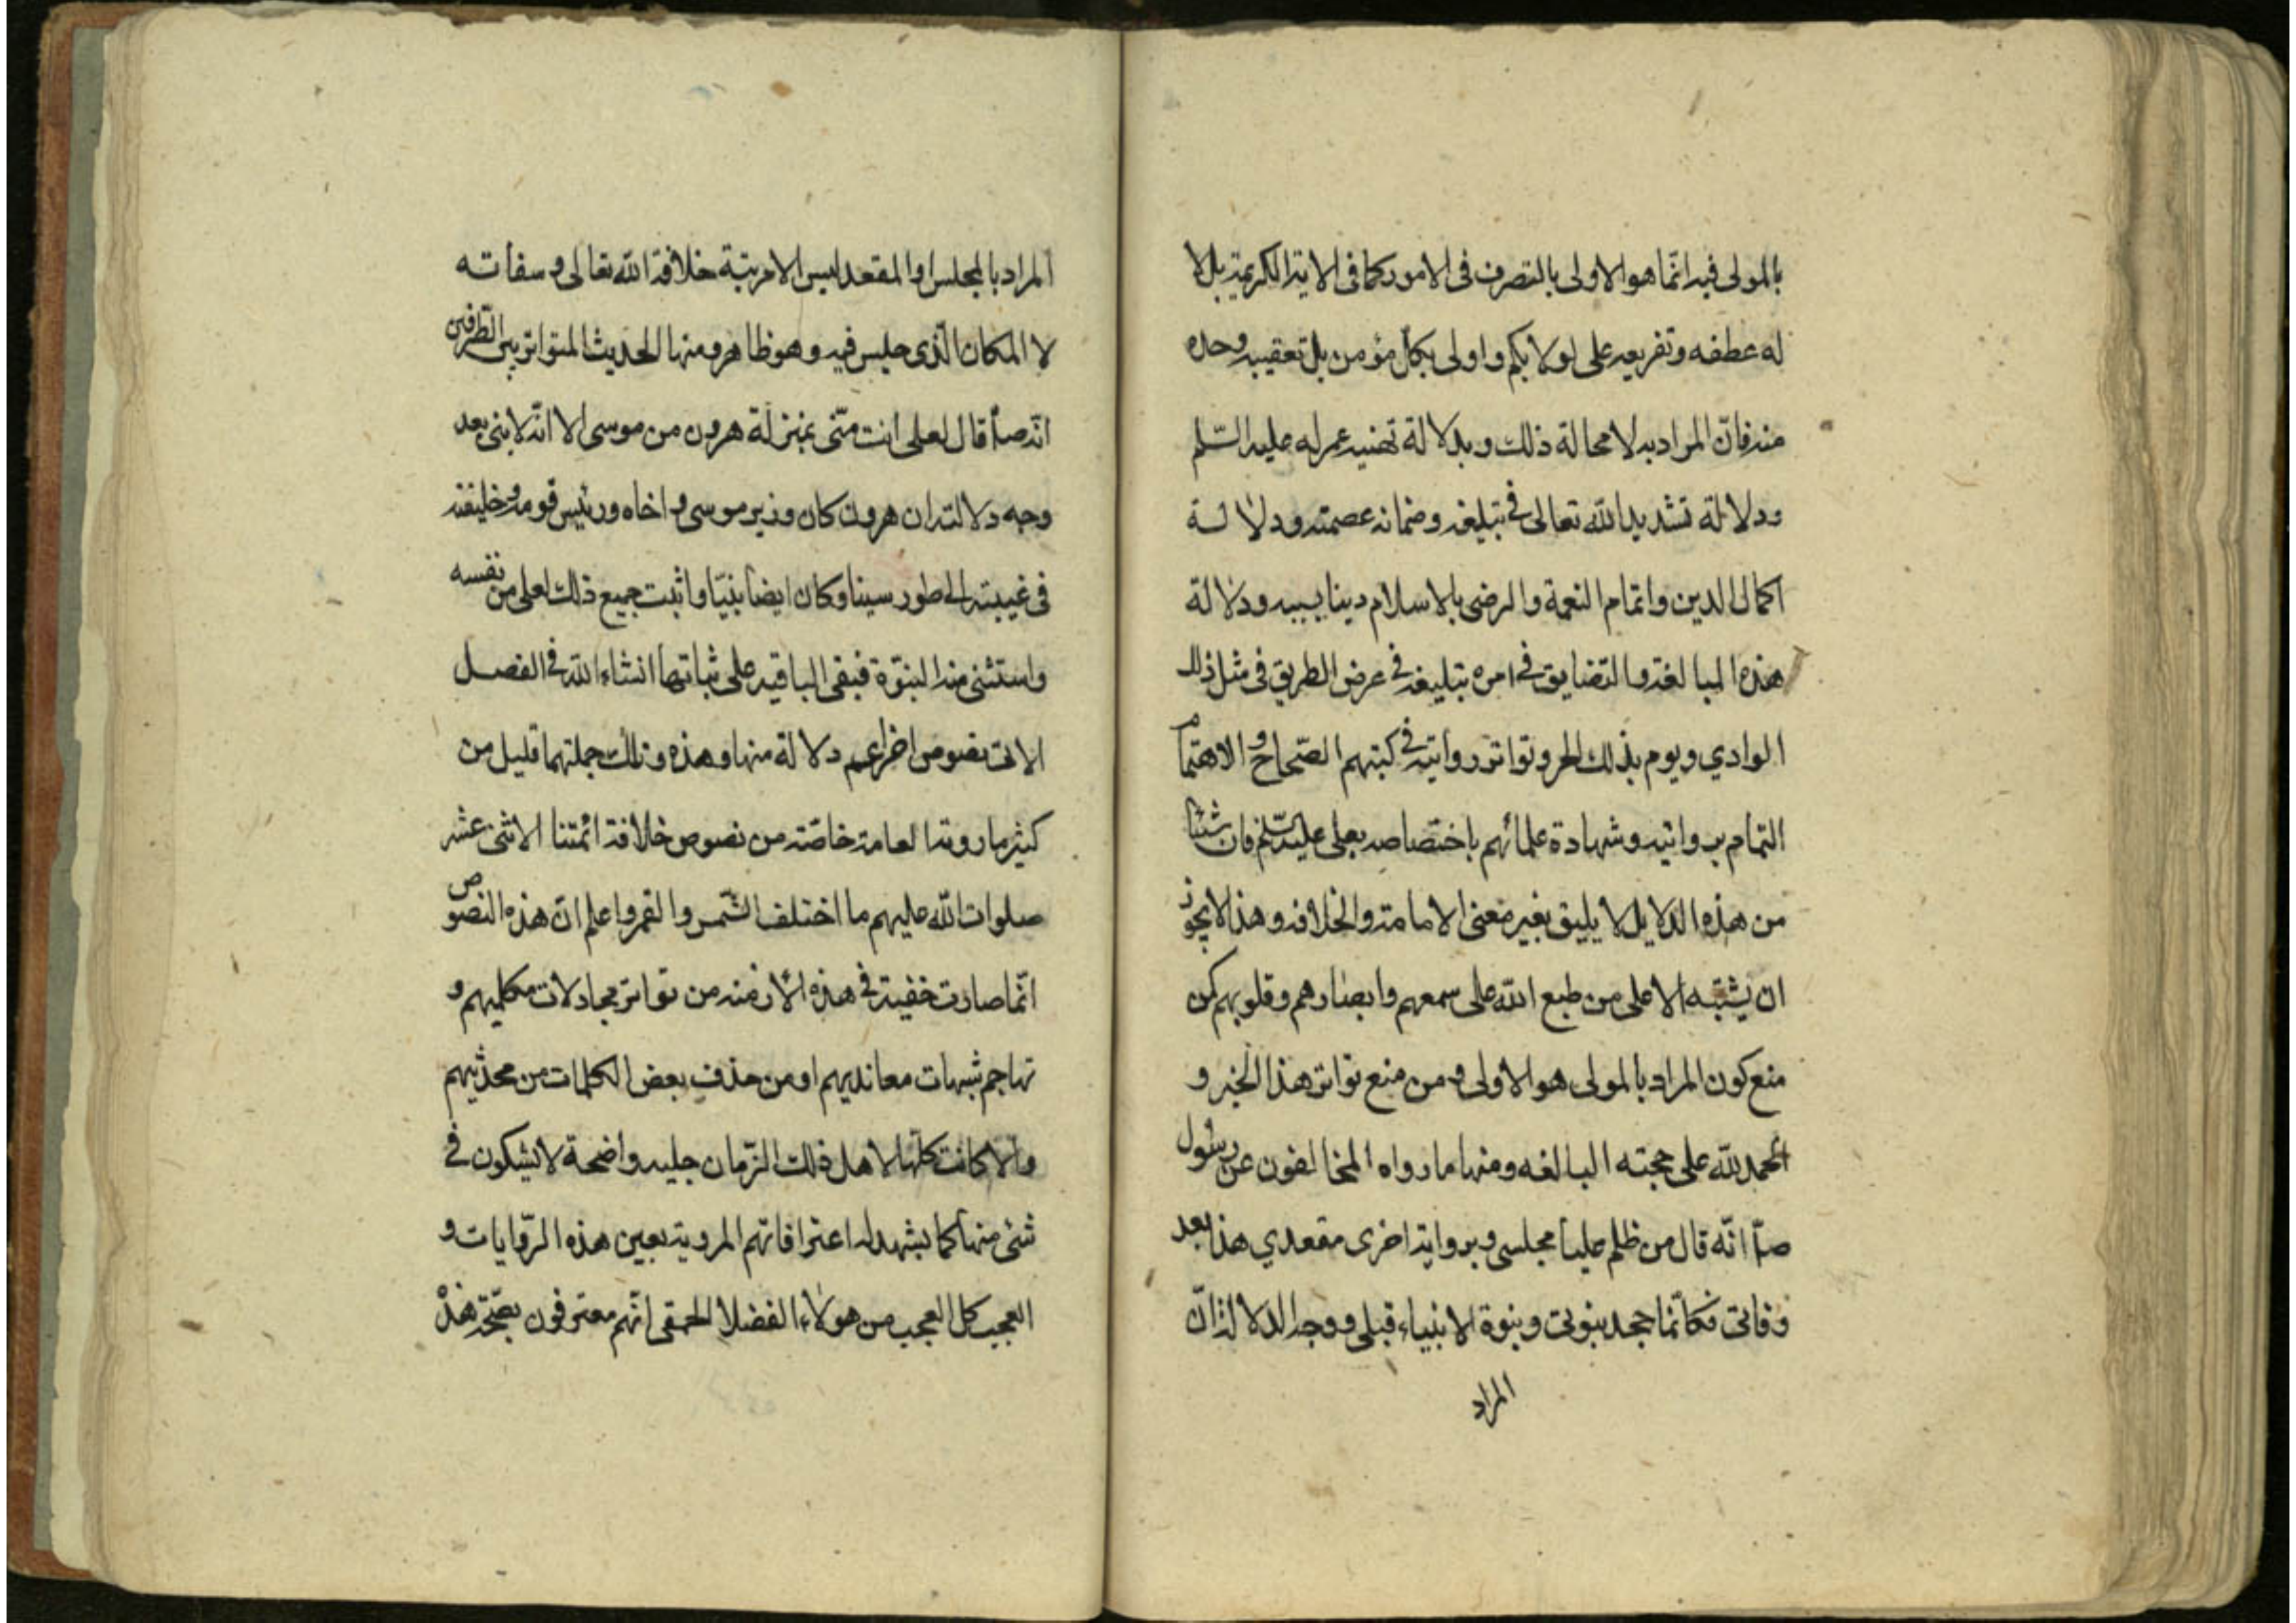 بالمولى فيه انّما هو الاولى بالتصرف فى الامور كما فى الاية الكريمة بل لا
له عطفه وتفريعه على اولا بكم و اولى بكل مؤمن بل تعقيبه وحده
منه فانّ المراد به لا محالة ذلك و بدلالة تهنيه عمر له عليه السّلم
ودلالة تشديد الله تعالى فى تبليغه وضمانه عصمته ودلالة
اكمال الدين واتمام النعمة والرضى بالاسلام دينا بسببه ودلالة
هذه المبالغة والتضايق فى امره بتبليغه فى عرض الطريق فى مثل ذلك
الوادي ويوم بذلك الحر وتواتر روايته فى كتبهم الصّحاح و الاهتمام
التمام برواتيه وشهادة علمائهم باختصاصه بعلى عليه السّلم فان شيئا
من هذه الدلايل لا يليق بغير معنى الامامة والخلافه وهذا لا يجوز
ان يشتبه الا على من طبع الله على سمعهم وابصارهم وقلوبهم كمن
منع كون المراد بالمولى هو الاولى ومن منع تواتر هذا الخبر و
الحمد لله على حجته البالغه ومنها ما رواه المخالفون عن رسول
صلّا انّه قال من ظلم عليا مجلسى وبرواية اخرى مقعدي هذا بعد
وفاتى فكانّما جحد بنوتى وبنوة الانبياء قبلى ووجه الدلالة انّ
المراد
المراد بالمجلس او المقعد ليس الا مرتبة خلافة الله تعالى و سفاته
لا المكان الّذى جليس فيه وهو ظاهر ومنها الحديث المتواتر بين الطرفين
انّه صلّا قال لعلى انت منّى بمنزلة هرون من موسى الا انّه لا بنى بعد
وجه دلالته ان هرون كان وزير موسى و اخاه ورئيس قومه وخليفته
فى غيبته الى طور سينا وكان ايضا بنيّا واثبت جميع ذلك لعلى من نفسه
واستثنى منه البنوّة فبقى الباقيه على ثباتها انشاء الله فى الفصل
الاتى نصوص اخر اعم دلالة منها وهذه وتلك جملتهما قليل من
كثير ما روته العامة خاصّة من نصوص خلافة ائمتنا الاثنى عشر
صلوات الله عليهم ما اختلف الشّمس والقمر واعلم ان هذه النصوص
انّما صارت خفية فى هذه الازمنه من تواتر مجادلات مكلميهم و
تهاجم شبهات معانديهم او من حذف بعض الكلمات من محدّثيهم
والّا كانت كلّها لاهل ذلك الزّمان جليه واضحة لا يشكون فى
شئى منها كما يشهد له اعترافاتهم المروية بعين هذه الرّوايات و
العجب كل العجب من هولاء الفضلا الحمقى انّهم معترفون بصّحة هذه